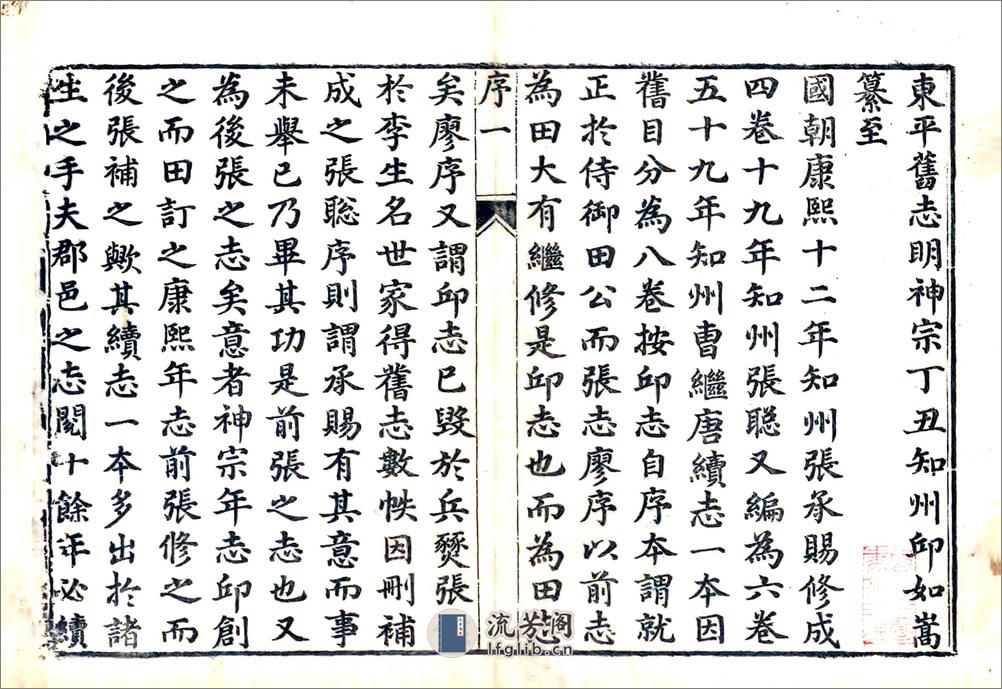 東平舊志明神宗丁丑知州邱如嵩
纂至
國朝康熙十二年知州張承賜修成
四卷十九年知州張聰又編為六卷
五十九年知州曹繼唐續志一本因
舊目分為八卷按邱志自序本謂就
正於侍御田公而張志廖序以前志
為田大有繼修是邱志也而為田志
序一
矣廖序又謂邱志已毀於兵燹張
於李生名世家得舊志數帙因刪補
成之張聡序則謂承賜有其意而事
未舉已乃畢其功是前張之志也又
為後張之志矣意者神宗年志邱創
之而田訂之康熙年志前張修之而
後張補之歟其續志一本多出於諸
生之手夫郡邑之志閱十餘年必續
流芳阁
lfglib.cn